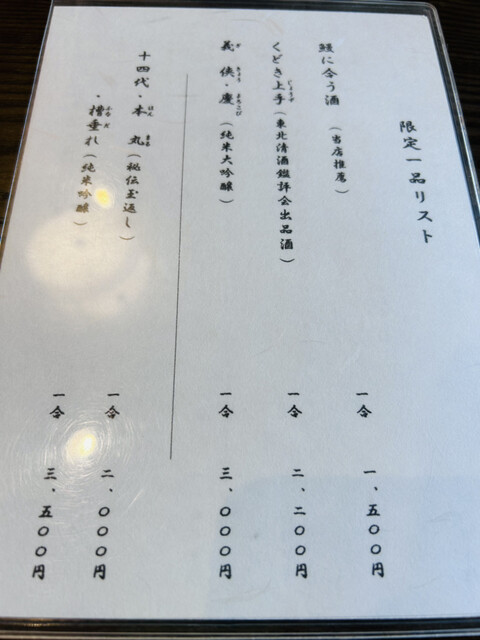 限定一品リスト
鰻に合う酒（当店推奨） 一合 一、五〇〇円
くどき上手（東北清酒鑑評会出品酒） 一合 二、二〇〇円
じょうず
義侠・慶（純米大吟醸） 一合 三、〇〇〇円
ぎ きょう よろこび
十四代・本丸（秘伝玉返し） 一合 二、〇〇〇円
ほん まる
・槽垂れ（純米吟醸） 一合 三、五〇〇円